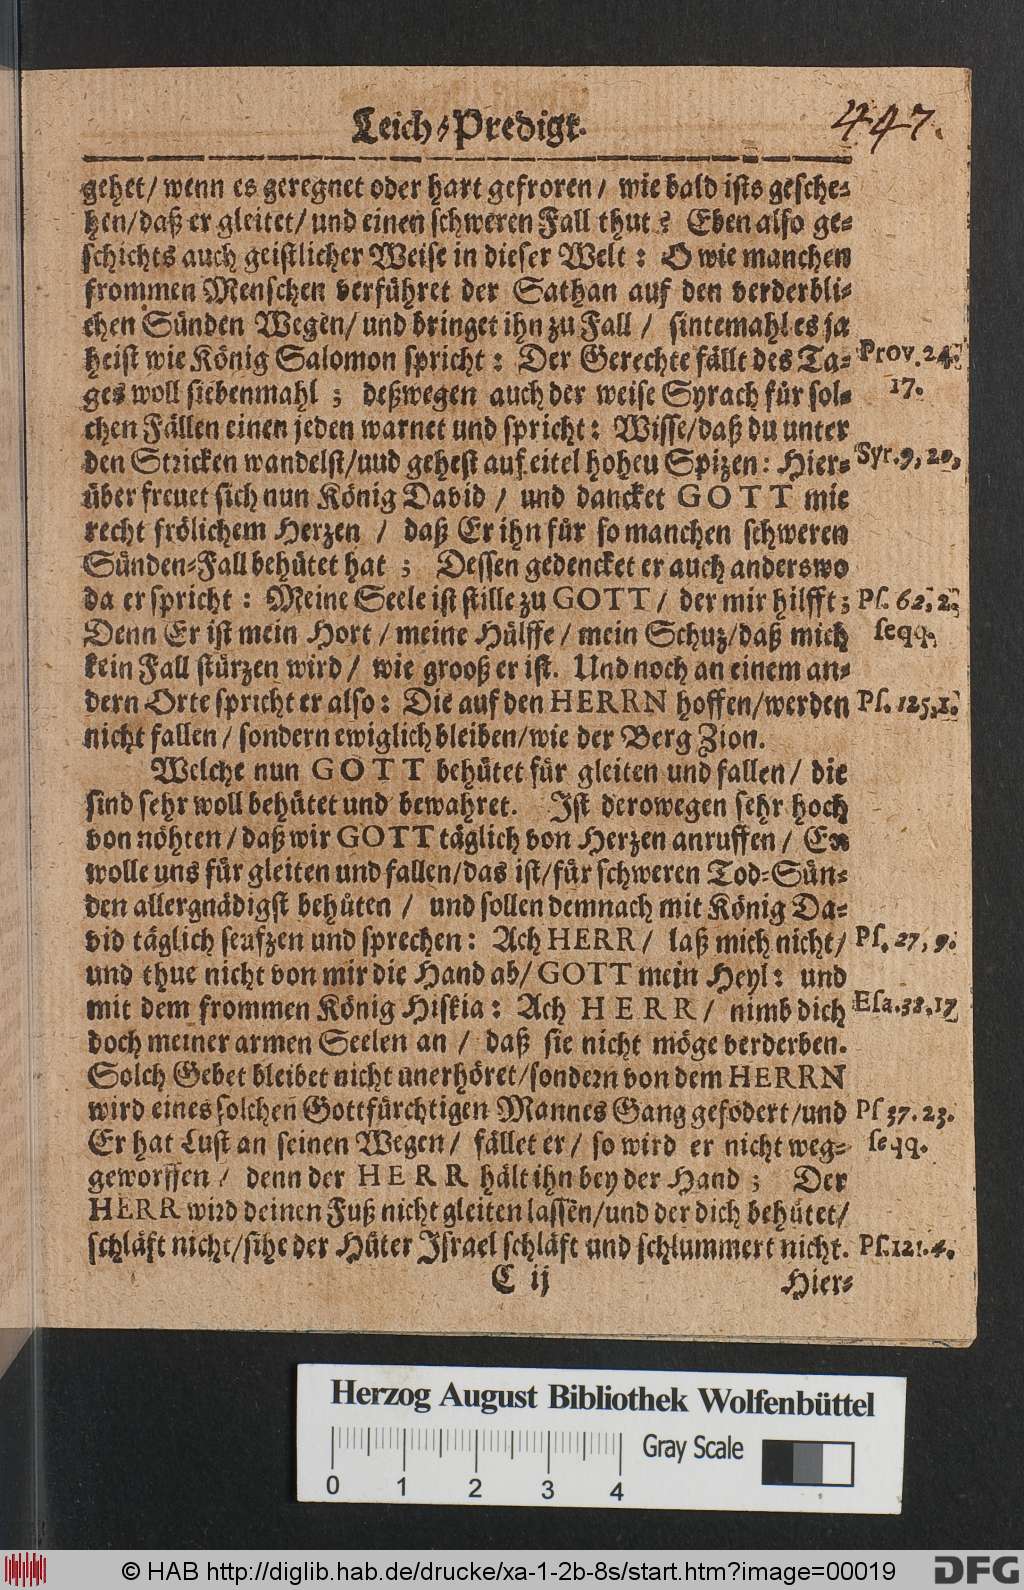 Leich-Predigt.
447.
gehet/ wenn es geregnet oder hart gefroren/ wie bald ists gesche-
hen/daß er gleitet/ und einen schweren Fall thut? Eben also ge-
schichts auch geistlicher Weise in dieser Welt: O wie manchen
frommen Menschen verführet der Sathan auf den verderbli-
chen Sünden Wegen/ und bringet ihn zu Fall / sintemahl es ja
heist wie König Salomon spricht: Der Gerechte fällt des Ta-
Prov. 24.
ges woll siebenmahl ; deßwegen auch der weise Syrach für sol-
17.
chen Fällen einen jeden warnet und spricht: Wisse/daß du unter
den Stricken wandelst/uud gehest auf eitel hoheu Spizen: Hier-
Syr. 9, 20,
über freuet sich nun König David / und dancket GOTT mit
recht frölichem Herzen / daß Er ihn für so manchen schweren
Sünden-Fall behütet hat ; Dessen gedencket er auch anderswo
da er spricht: Meine Seele ist stille zu GOTT/ der mir hilfft;
Ps. 62, 2.
Denn Er ist mein Hort/ meine Hülffe/ mein Schuz/daß mich
seqq.
kein Fall stürzen wird/ wie grooß er ist. Und noch an einem an-
dern Orte spricht er also: Die auf den HERRN hoffen/werden
Ps. 125, 1.
nicht fallen/ sondern ewiglich bleiben/wie der Berg Zion.
Welche nun GOTT behütet für gleiten und fallen/ die
sind sehr woll behütet und bewahret. Ist derowegen sehr hoch
von nöhten/daß wir GOTT täglich von Herzen anruffen/ Er
wolle uns für gleiten und fallen/das ist/für schweren Tod-Sün-
den allergnädigst behüten / und sollen demnach mit König Da-
vid täglich seufzen und sprechen: Ach HERR/ laß mich nicht/
Ps. 27, 9.
und thue nicht von mir die Hand ab/ GOTT mein Heyl: und
mit dem frommen König Hiskia: Ach HERR/ nimb dich
Esa. 38. 17
doch meiner armen Seelen an / daß sie nicht möge verderben.
Solch Gebet bleibet nicht unerhöret/sondern von dem HERRN
wird eines solchen Gottfürchtigen Mannes Gang gefodert/und
Ps 37. 23.
Er hat Lust an seinen Wegen/ fället er/ so wird er nicht weg-
seqq.
geworffen/ denn der HERR hält ihn bey der Hand ; Der
HERR wird deinen Fuß nicht gleiten lassen/und der dich behütet/
schläft nicht/sihe der Hüter Israel schläft und schlummert nicht.
Ps. 121. 4.
C ij
Hier-
Herzog August Bibliothek Wolfenbüttel
Gray Scale
0 1 2 3 4
© HAB http://diglib.hab.de/drucke/xa-1-2b-8s/start.htm?image=00019
DFG